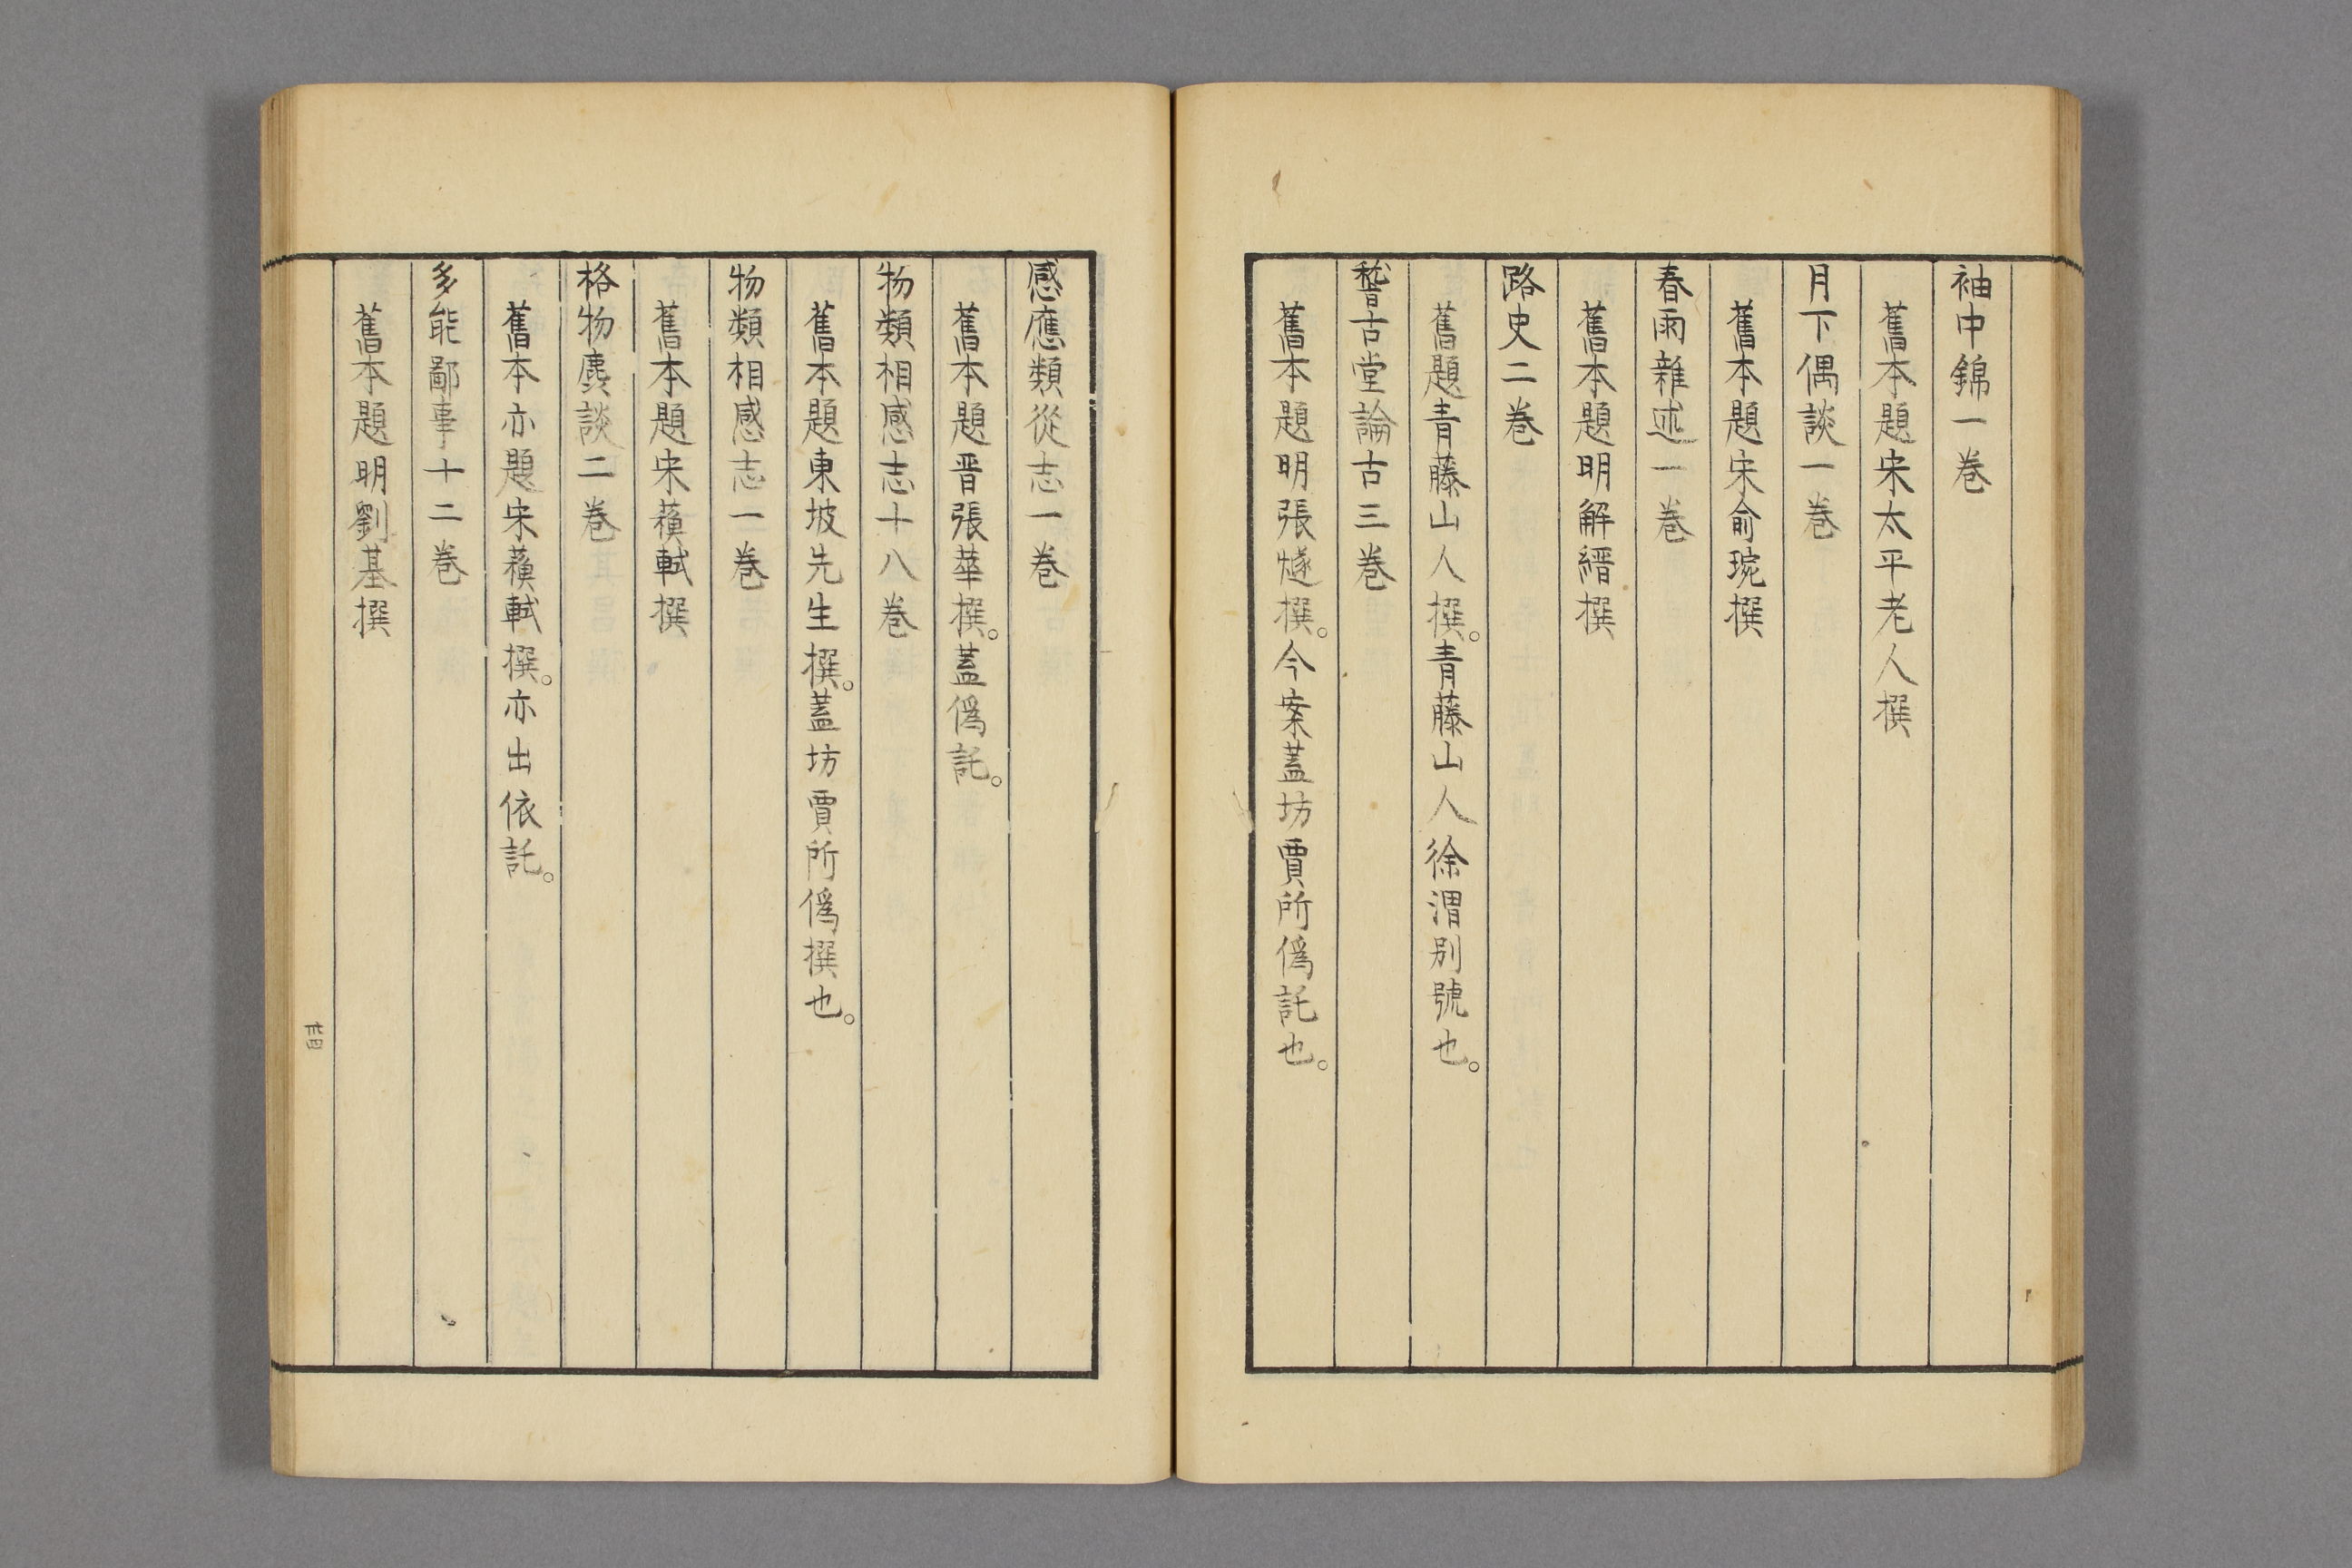 袖中錦一巻
舊本題宋太平老人撰
月下偶談一巻
舊本題宋俞琬撰
春雨雜述一巻
舊本題明解縉撰
路史二巻
舊題青藤山人撰。青藤山人徐渭別號也。
稽古堂論古三巻
舊本題明張燧撰。今案蓋坊賈所僞託也。
感應類從志一巻
舊本題晋張華撰。蓋僞託。
物類相感志十八巻
舊本題東坡先生撰。蓋坊賈所僞撰也。
物類相感志一巻
舊本題宋蘓軾撰
格物麤談二巻
舊本亦題宋蘓軾撰。亦出依託。
多能鄙事十二巻
舊本題明劉基撰
卅四